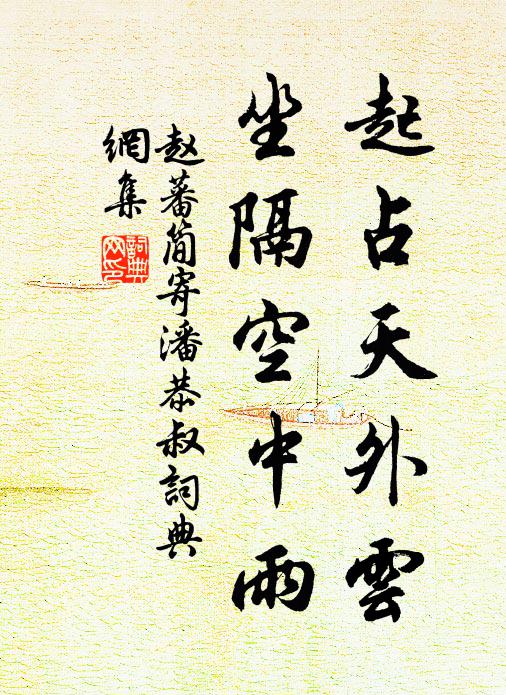 起占天外雲
坐隔空中雨
赵蕃简寄潘恭叔詞典
網集
詞典
网印